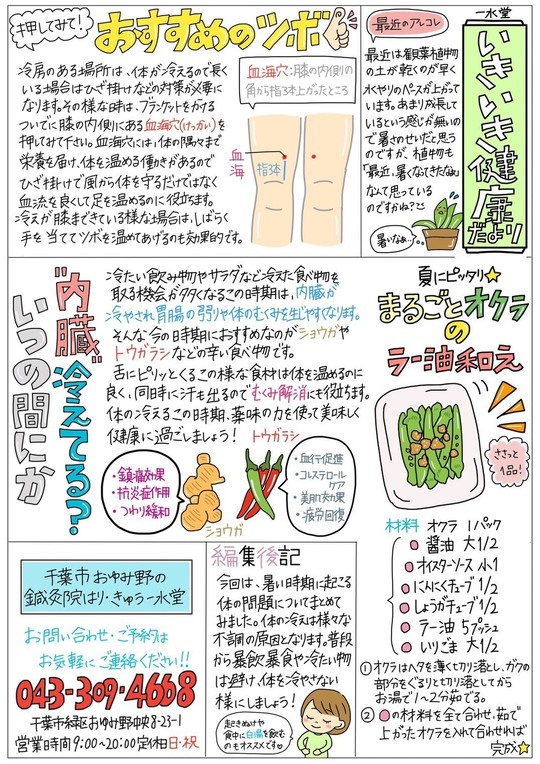 一水堂
いきいき健康だより
押してみて！
おすすめのツボ
冷房のある場所は、体が冷えるので長く
いる場合はひざ掛けなどの対策が必要に
なります。その様な時は、ブランケットをかける
ついでに膝の内側にある血海穴(けっかい)を
押してみて下さい。血海穴には、体の隅々まで
栄養を届け、体を温める働きがあるので
ひざ掛けで風から体を守るだけではなく
血流を良くして足を温めるのに役立ちます。
冷えが膝まできている様な場合は、しばらく
手を当ててツボを温めてあげるのも効果的です。
血海穴:膝の内側の
角から指3本上がったところ
血海
指3本
最近のアレコレ
最近は観葉植物
の土が乾くのが早く
水やりのペースが上がって
います。あまり成長して
いるという感じが無いの
で暑さのせいだと思う
のですが、植物も
「最近、暑くなってきたなぁ」
なんて思っている
のですかね？
暑いなぁ…
"内臓"冷えてる？
いつの間にか
冷たい飲み物やサラダなど冷えた食べ物を
取る機会が多くなるこの時期は、内臓が
冷やされ胃腸の弱りや体のむくみを生じやすくなります。
そんな今の時期におすすめなのがショウガや
トウガラシなどの辛い食べ物です。
舌にピリッとくるこの様な食材は体を温めるのに
良く、同時に汗も出るのでむくみ解消にも役立ちます。
体の冷えるこの時期、薬味の力を使って美味しく
健康に過ごしましょう！
トウガラシ
・鎮痛効果
・抗炎症作用
・つわり緩和
ショウガ
・血行促進
・コレステロール
ケア
・美肌効果
・疲労回復
夏にピッタリ★
まるごとオクラ
の
ラー油和え
ささっと
1品！
材料 オクラ 1パック
醤油 大1/2
オイスターソース 小1
にんにくチューブ 1/2
しょうがチューブ 1/2
ラー油 5プッシュ
いりごま 大1/2
①オクラはヘタを薄くで切り落とし、ガクの
部分をぐるりと切り落としてから
お湯で1〜2分茹でる。
②●の材料を全て合わせ、茹で
上がったオクラを入れて合わせれば
完成★
千葉市おゆみ野の
鍼灸院はり・きゅう一水堂
お問い合わせ・ご予約は
お気軽にご連絡ください!!
043-309-4668
千葉市緑区おゆみ野中央8-23-1
営業時間9:00〜20:00定休日日・祝
編集後記
今回は、暑い時期に起こる
体の問題についてまとめて
みました。体の冷えは様々な
不調の原因となります。普段
から暴飲暴食や冷たい物
は避け、体を冷やさない
様にしましょう！
起きぬけや
食中に白湯を飲む
のもオススメです♡